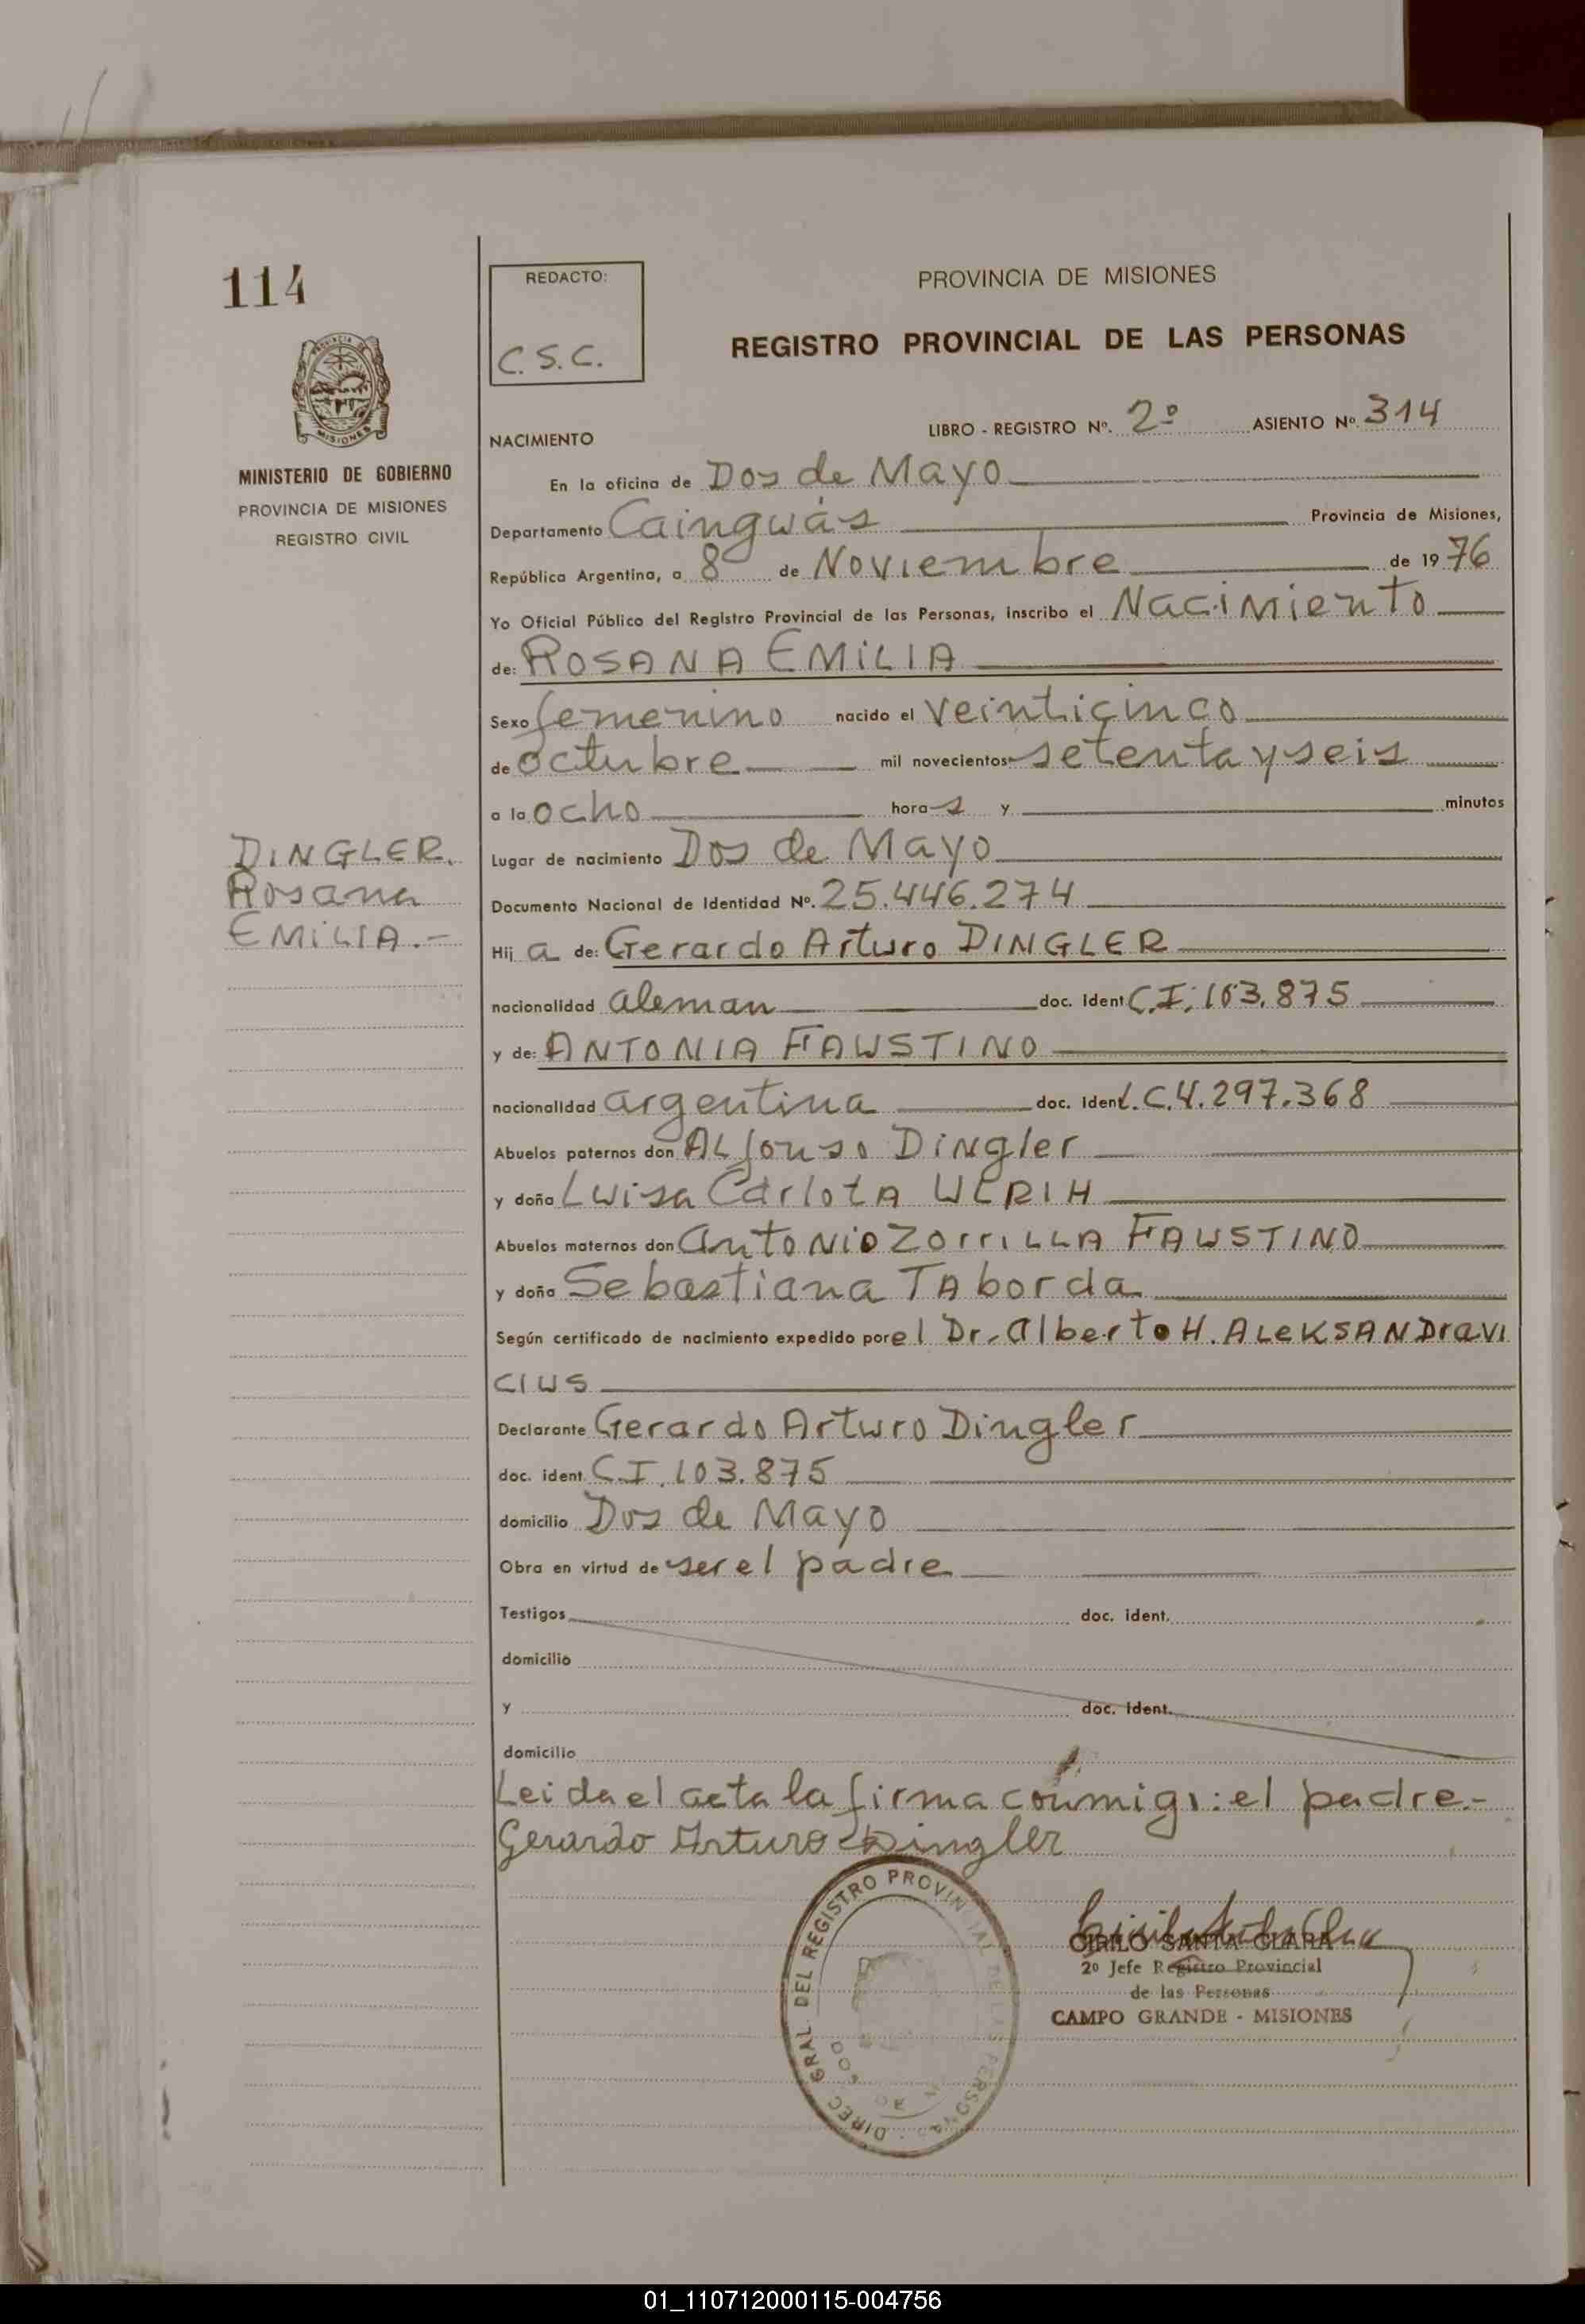 114
PROVINCIA DE MISIONES
MINISTERIO DE GOBIERNO
PROVINCIA DE MISIONES
REGISTRO CIVIL
DINGLER.
Rosana
EMILIA.-
REDACTO:
C.S.C.
PROVINCIA DE MISIONES
REGISTRO PROVINCIAL DE LAS PERSONAS
NACIMIENTO
LIBRO - REGISTRO Nº. 2º ASIENTO Nº. 314
En la oficina de Dos de Mayo
Departamento Cainguás Provincia de Misiones,
República Argentina, a 8 de Noviembre de 1976
Yo Oficial Público del Registro Provincial de las Personas, inscribo el Nacimiento
de: ROSANA EMILIA
Sexo femenino nacido el veinticinco
de octubre mil novecientos setenta y seis
a la ocho horas y minutos
Lugar de nacimiento Dos de Mayo
Documento Nacional de Identidad Nº. 25.446.274
Hij a de: Gerardo Arturo DINGLER
nacionalidad aleman doc. ident C.I. 103.875
y de: ANTONIA FAUSTINO
nacionalidad argentina doc. ident L.C.4.297.368
Abuelos paternos don ALfonso Dingler
y doña Luisa Carlota
Abuelos maternos don Antonio ZorriLLA FAUSTINO
y doña Sebastiana TAborda
Según certificado de nacimiento expedido por el Dr. Alberto H. ALeKSANDravi
cius
Declarante Gerardo Arturo Dingler
doc. ident. C.I. 103.875
domicilio Dos de Mayo
Obra en virtud de ser el padre
Testigos doc. ident.
domicilio
y doc. ident.
domicilio
Leida el acta la firma conmigo: el padre.-
Gerardo Arturo Dingler
DIREC. GRAL. DEL REGISTRO PROVINCIAL DE LAS PERSONAS
CIRILO SANTA CLARA
2º Jefe Registro Provincial
de las Personas
CAMPO GRANDE - MISIONES
01_110712000115-004756